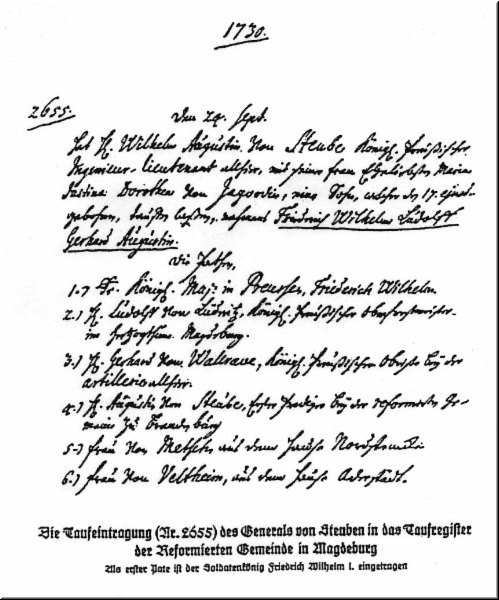 1730.
2655.
Den 24. Sept.
hat H. Wilhelm Augustin Von Steube Königl. Preußischer
Ingenieur-lieutenant allhier, mit seiner frau Eheliebsten Maria
Justina Dorothea Von Jagovdin, einen Sohn, welcher den 17. ejusd.
gebohren, tauffen laßen, nahmens Friedrich Wilhelm Ludolff
Gerhard Augustin.
Die Pathen,
1.) Sr. Königl. Maj: in Preussen, Friederich Wilhelm.
2.) H. Ludolff Von Lüdritz, Königl. Preußischer Oberforstmeister
im Hertzogthum Magdeburg.
3.) H. Gerhard Von Wallrave, Königl. Preußischer Obrister bey der
artillerie allhier.
4.) H. Augustin Von Steube, Erster Prediger bey der reformirten Ge-
meine zu Brandenburg
5.) frau Von Metsch, aus dem Hause
6.) frau Von Veltheim, aus dem Hause Aderstädt.
Die Taufeintragung (Nr. 2655) des Generals von Steuben in das Taufregister
der Reformierten Gemeinde in Magdeburg
Als erster Pate ist der Soldatenkönig Friedrich Wilhelm I. eingetragen